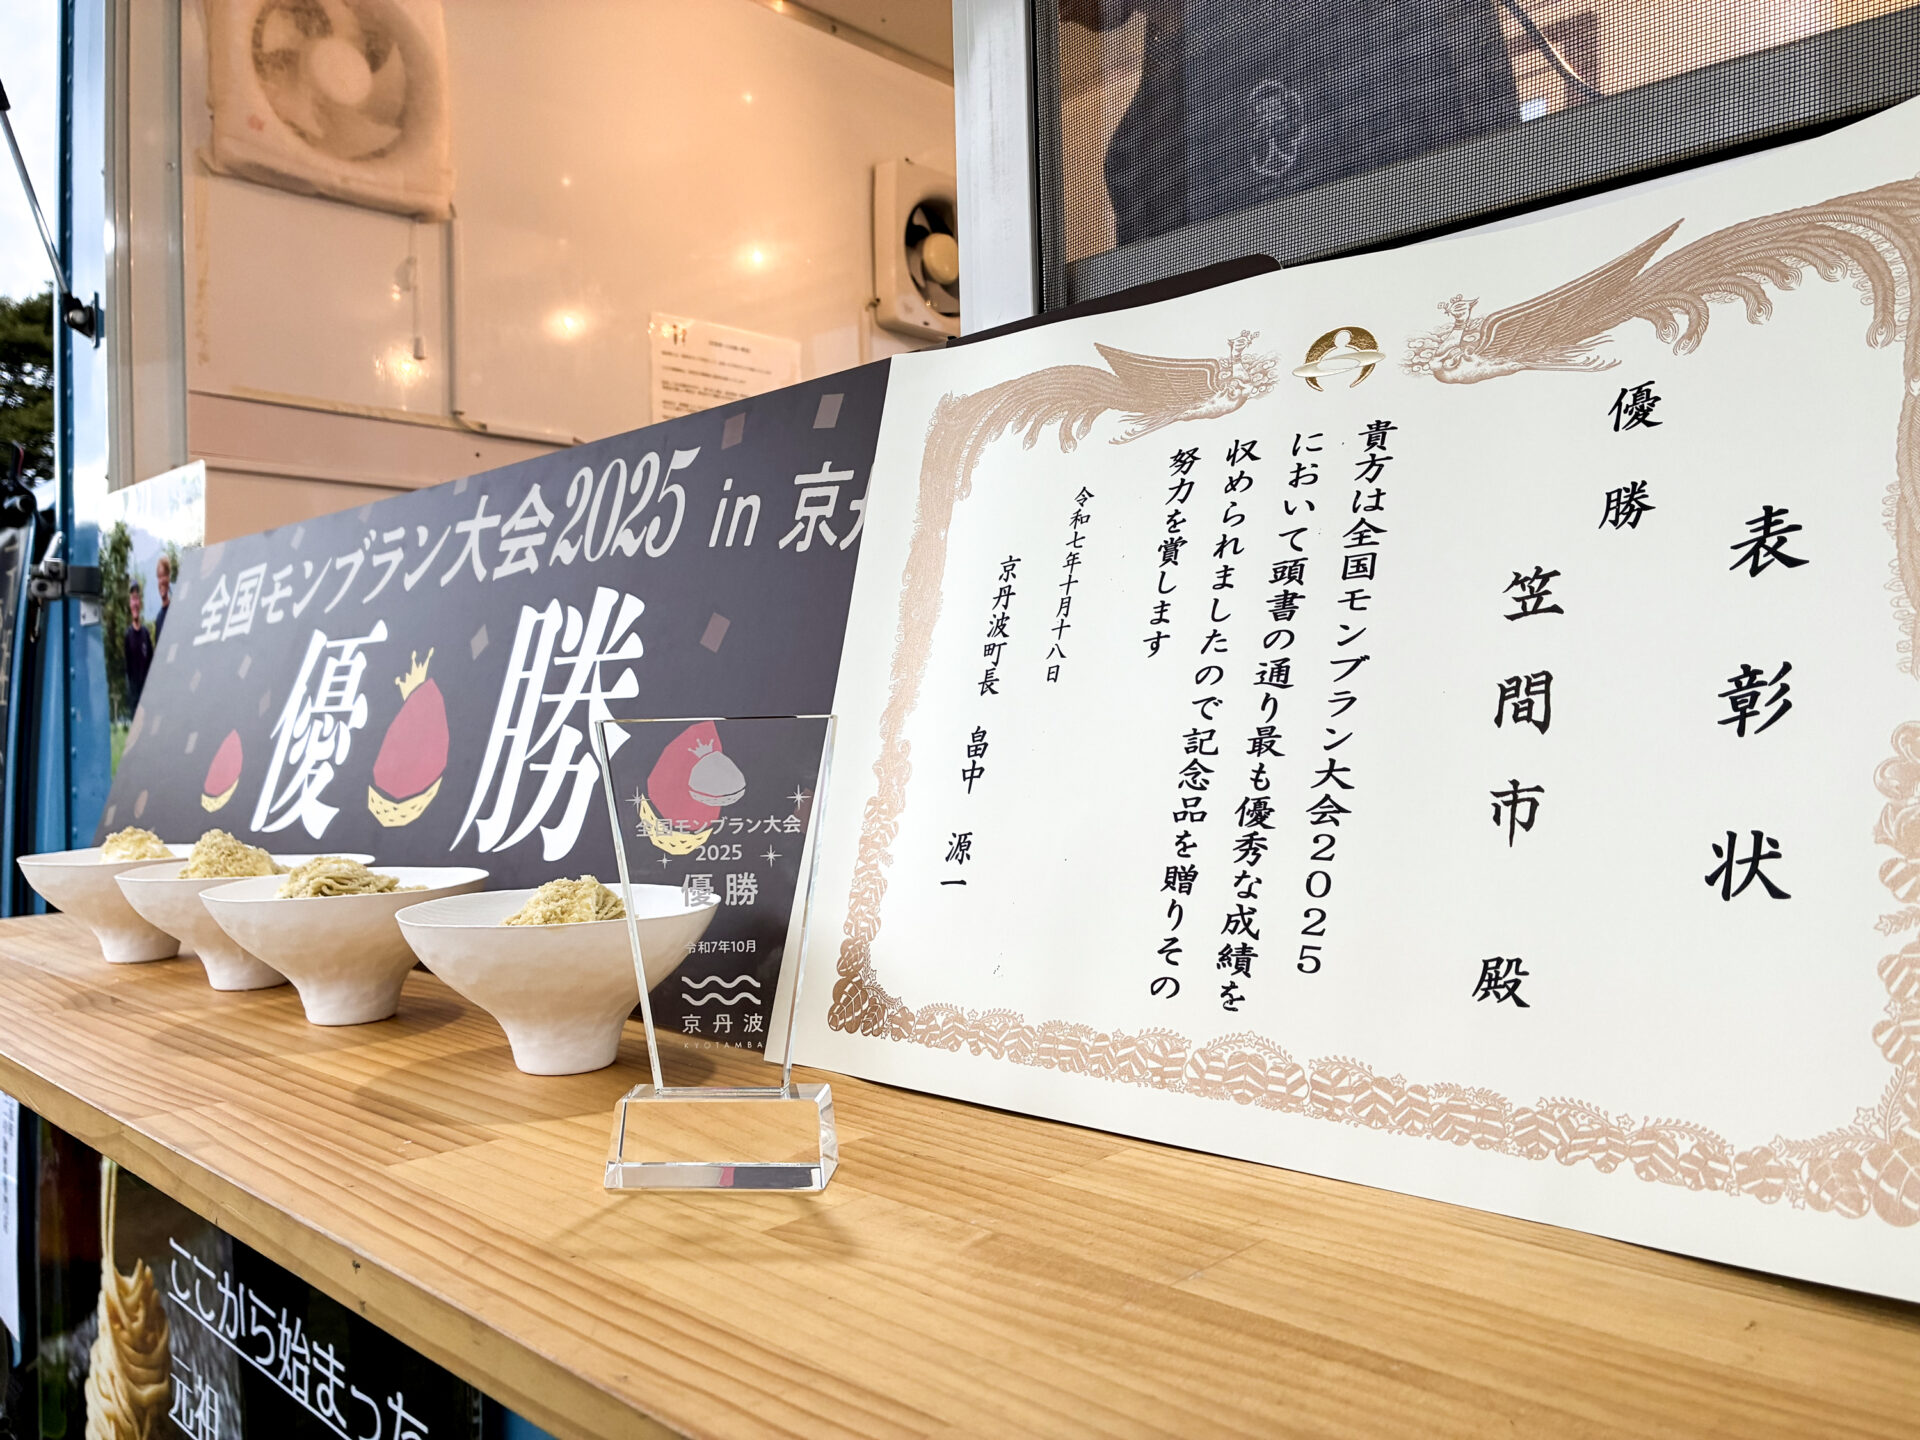 全国モンブラン大会2025 in 京丹
優勝
全国モンブラン大会
2025
優勝
令和7年10月
京丹波
KYOTAMBA
表彰状
優勝
笠間市 殿
貴方は全国モンブラン大会2025
において頭書の通り最も優秀な成績を
収められましたので記念品を贈りその
努力を賞します
令和七年十月十八日
京丹波町長 畠中 源一
ここから始まった
元祖